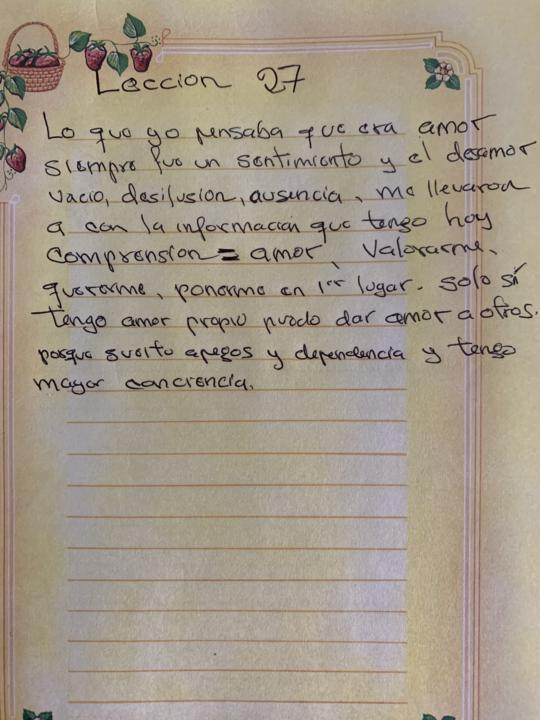 Leccion 27
Lo que yo pensaba que era amor
siempre fue un sentimiento y el desamor
vacio, desilusion, ausencia, me llevaron
a con la informacion que tengo hoy
comprension = amor, Valorarme,
quererme, ponerme en 1er lugar. solo sí
tengo amor propio puedo dar amor a otros.
porque suelto apegos y dependencia y tengo
mayor conciencia.